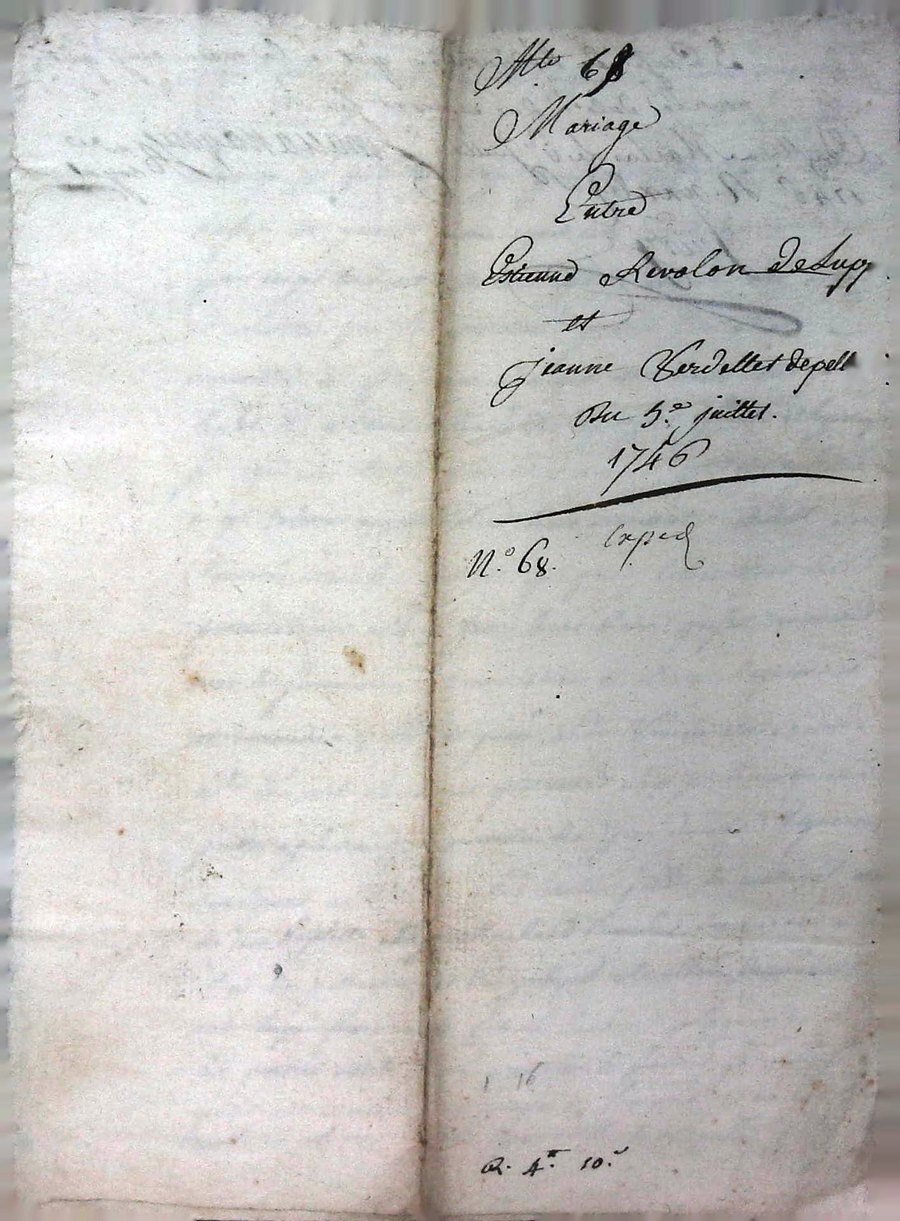 68
Mariage
Entre
Estienne Revolon de Lupp
et
jeanne Verdellet depell
Du 5.e juillet.
1746
N.o 68. exped
1 16
R. 4.tt 10.s